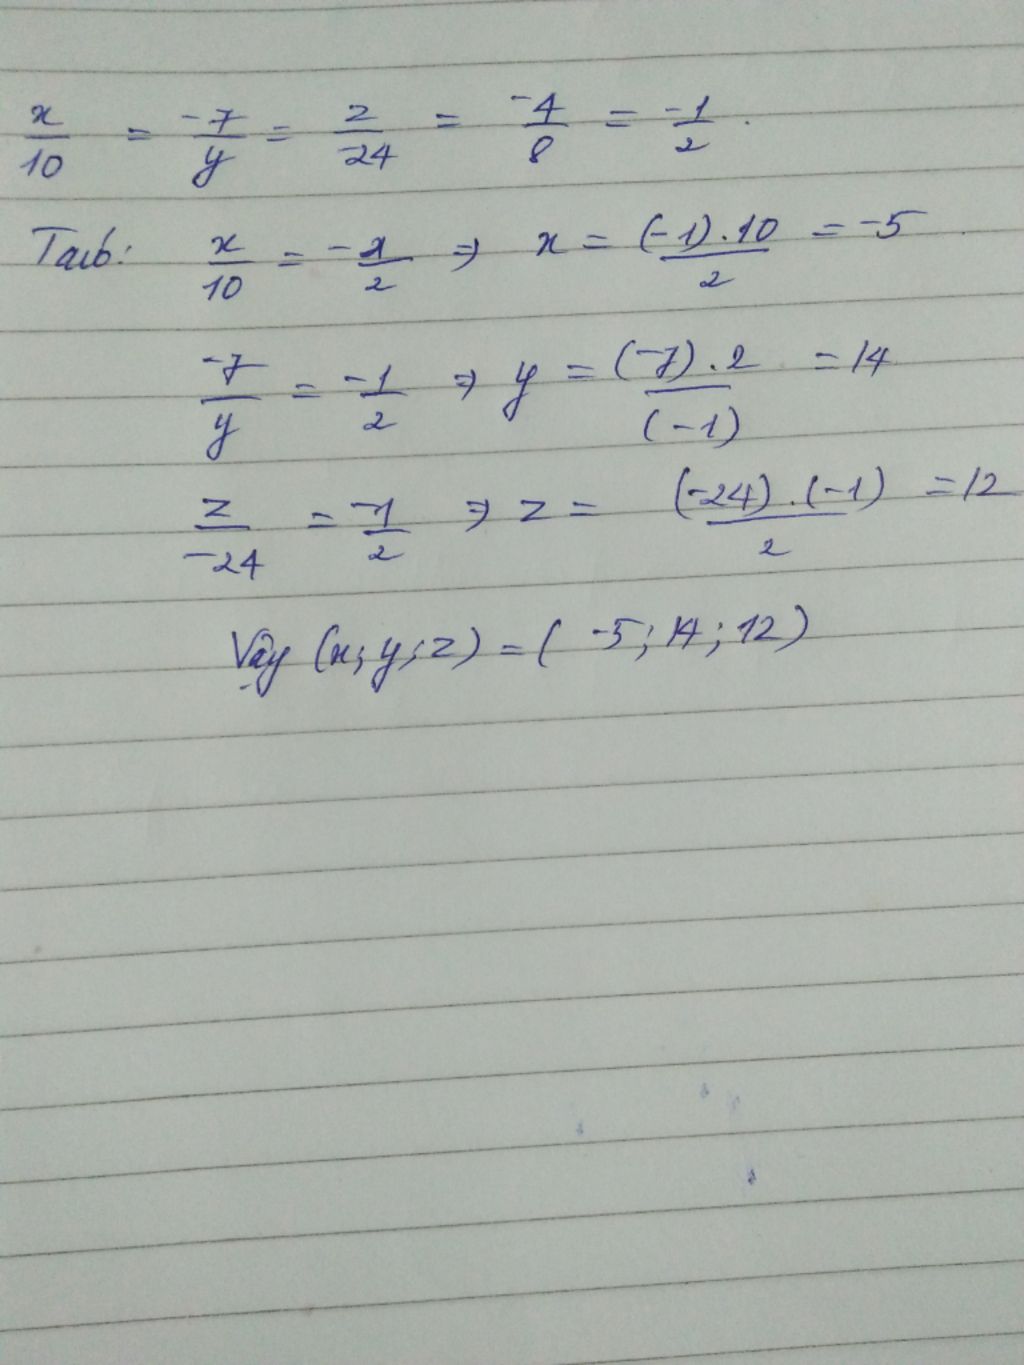 x/10 = -7/y = z/-24 = -4/8 = -1/2.
Ta có: x/10 = -1/2 => x = (-1).10/2 = -5
-7/y = -1/2 => y = (-7).2/(-1) = 14
z/-24 = -1/2 => z = (-24).(-1)/2 = 12
Vậy (x; y; z) = (-5; 14; 12)